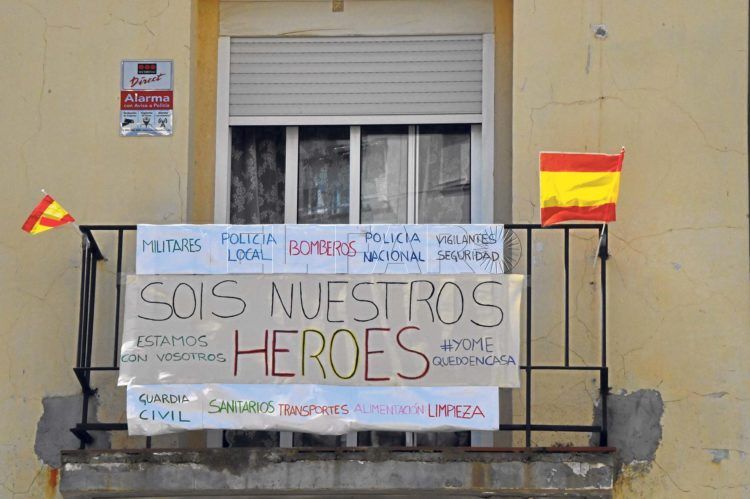 Direct
Alarma
con Aviso a Policía
MILITARES
POLICIA
LOCAL
BOMBEROS
POLICIA
NACIONAL
VIGILANTES
SEGURIDAD
SOIS NUESTROS
HEROES
ESTAMOS
CON VOSOTROS
#YOME
QUEDOENCASA
GUARDIA
CIVIL
SANITARIOS
TRANSPORTES
ALIMENTACIÓN
LIMPIEZA